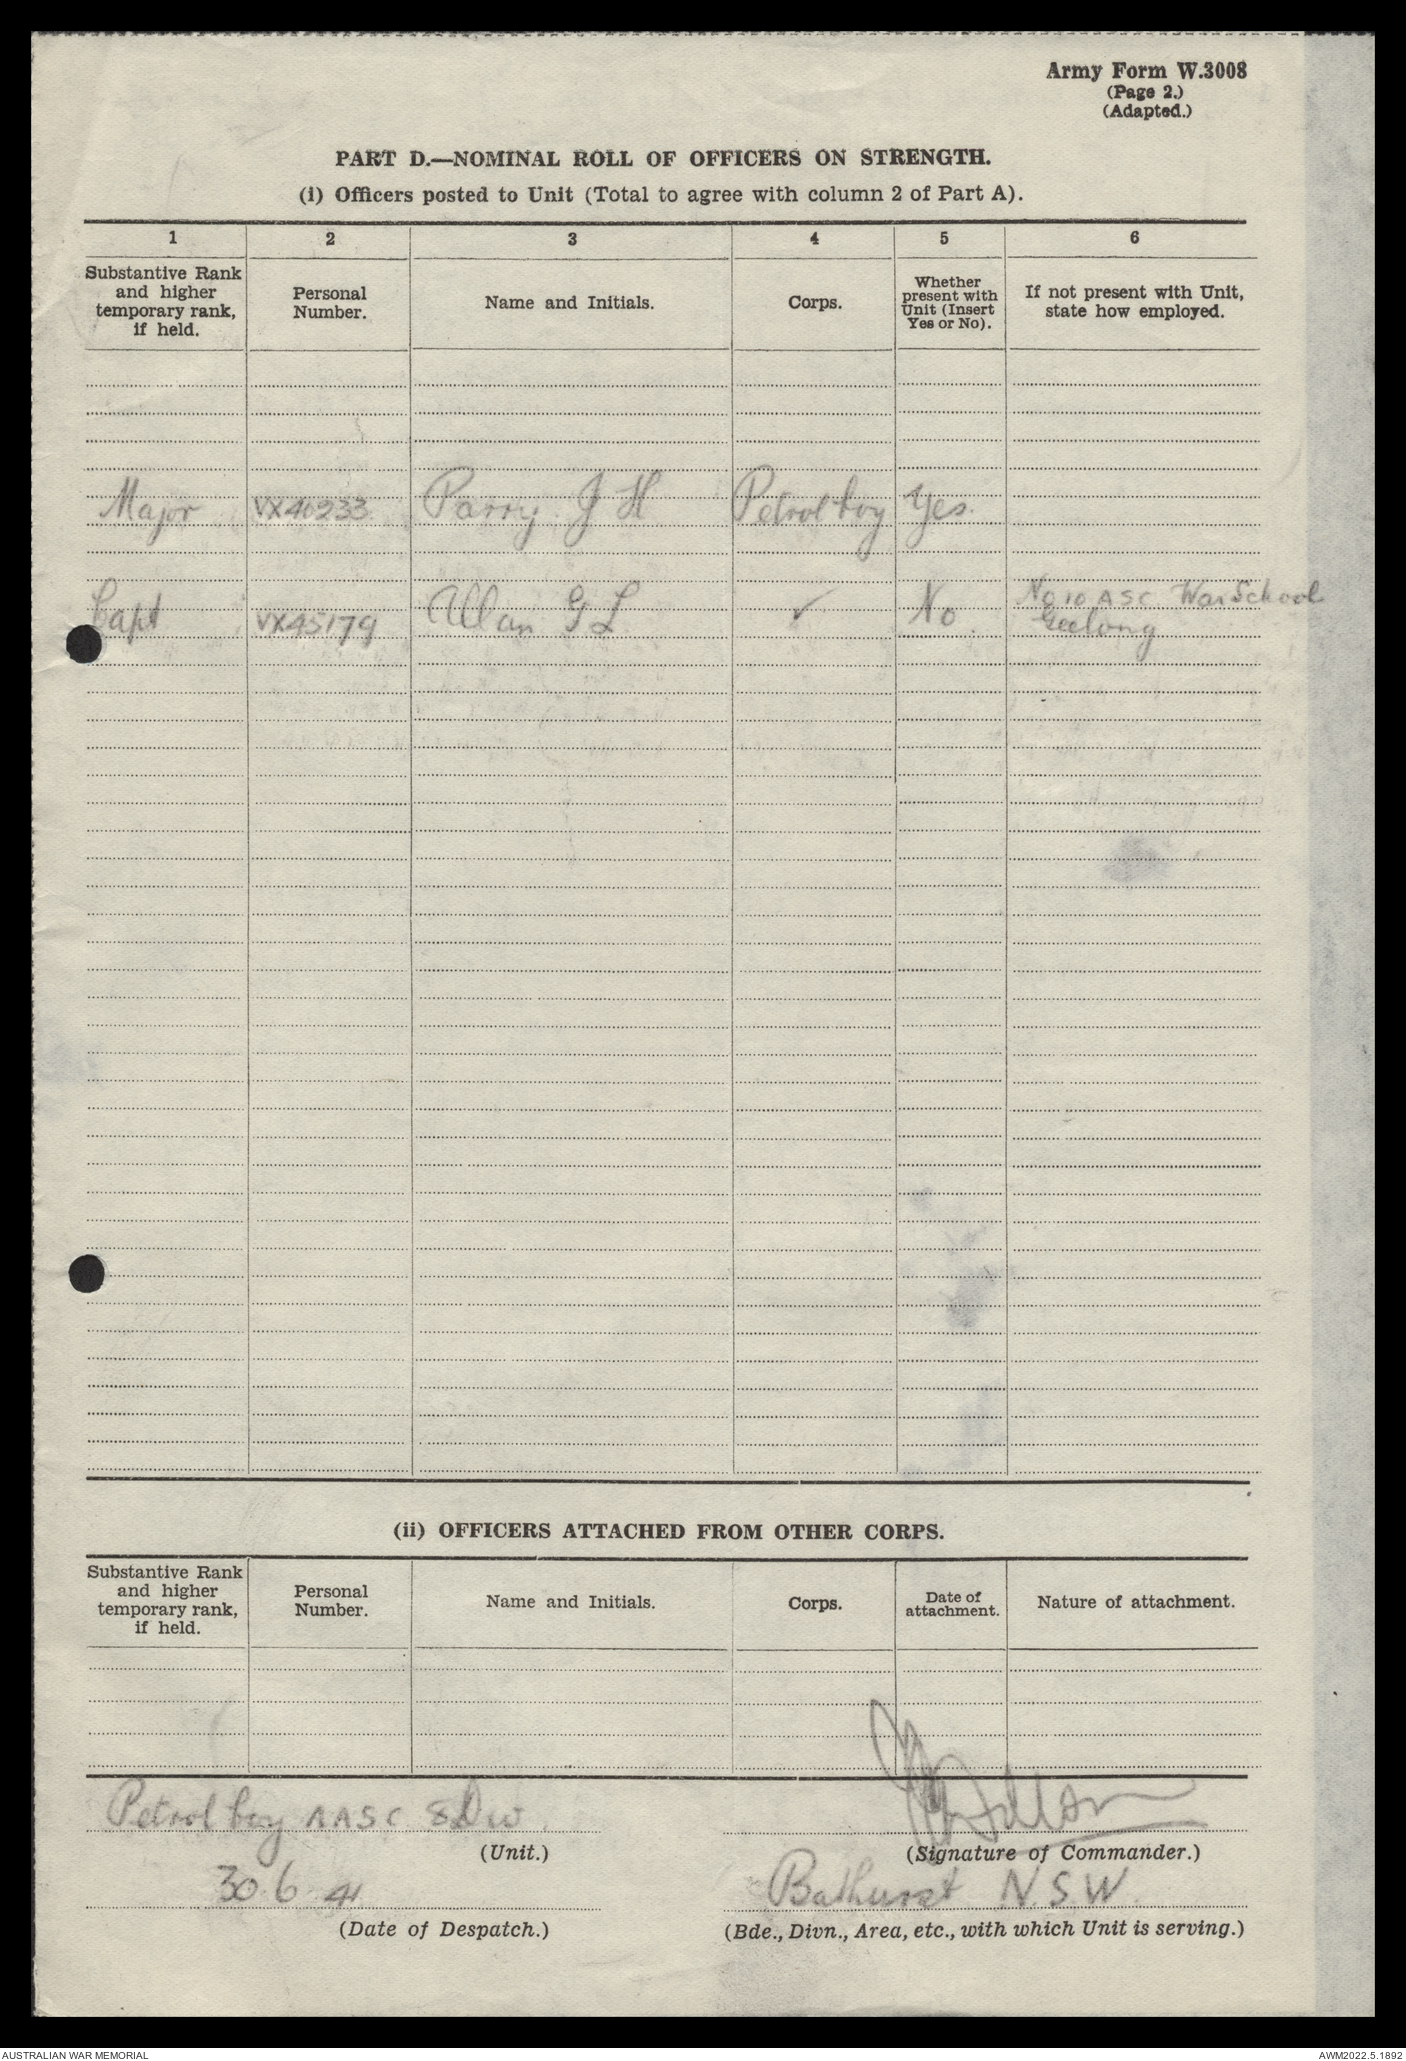 Army Form W.3008
(Page 2.)
(Adapted.)
PART D.—NOMINAL ROLL OF OFFICERS ON STRENGTH.
(i) Officers posted to Unit (Total to agree with column 2 of Part A).
1 2 3 4 5 6
Substantive Rank and higher temporary rank, if held.
Personal Number.
Name and Initials.
Corps.
Whether present with Unit (Insert Yes or No).
If not present with Unit, state how employed.
Major VX40233 Parry J H Petrol Coy Yes.
Capt VX45179 Allan G L ✓ No. No 10 ASC War School
Geelong
(ii) OFFICERS ATTACHED FROM OTHER CORPS.
Substantive Rank and higher temporary rank, if held.
Personal Number.
Name and Initials.
Corps.
Date of attachment.
Nature of attachment.
Petrol Coy AASC 8 Div.
(Unit.)
(Signature of Commander.)
30 6 41
(Date of Despatch.)
Bathurst N.S.W.
(Bde., Divn., Area, etc., with which Unit is serving.)
AUSTRALIAN WAR MEMORIAL
AWM2022.5.1892